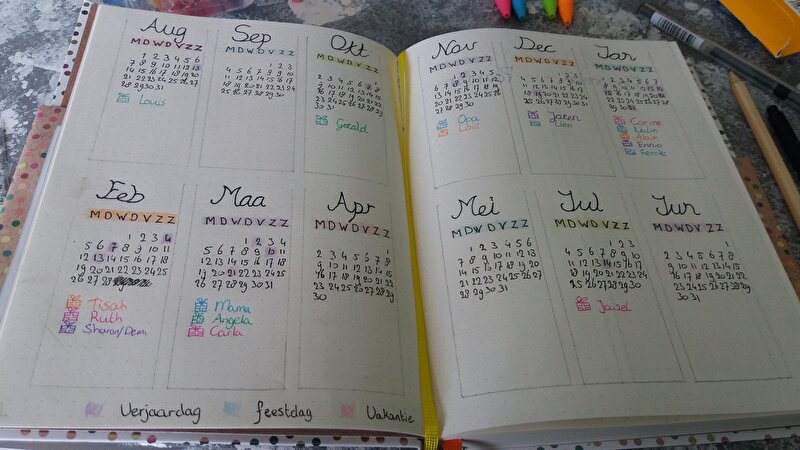 Aug
M D W D V Z Z
1 2 3 4 5 6
7 8 9 10 11 12 13
14 15 16 17 18 19 20
21 22 23 24 25 26 27
28 29 30 31
Louis
Sep
M D W D V Z Z
1 2 3
4 5 6 7 8 9 10
11 12 13 14 15 16 17
18 19 20 21 22 23 24
25 26 27 28 29 30
Okt
M D W D V Z Z
1
2 3 4 5 6 7 8
9 10 11 12 13 14 15
16 17 18 19 20 21 22
23 24 25 26 27 28 29
30 31
Gerald
Nov
M D W D V Z Z
1 2 3 4 5
6 7 8 9 10 11 12
13 14 15 16 17 18 19
20 21 22 23 24 25 26
27 28 29 30
Opa
Lois
Dec
M D W D V Z Z
Jaren
Lien
Jan
M D W D V Z Z
1 2 3 4 5 6 7
8 9 10 11 12 13 14
15 16 17 18 19 20 21
22 23 24 25 26 27 28
29 30 31
Corine
Alain
Ennio
Femke
Feb
M D W D V Z Z
1 2 3 4
5 6 7 8 9 10 11
12 13 14 15 16 17 18
19 20 21 22 23 24 25
26 27 28
Tisah
Ruth
Sharon/Demi
Maa
M D W D V Z Z
1 2 3 4
5 6 7 8 9 10 11
12 13 14 15 16 17 18
19 20 21 22 23 24 25
26 27 28 29 30 31
Mama
Angela
Carla
Apr
M D W D V Z Z
1
2 3 4 5 6 7 8
9 10 11 12 13 14 15
16 17 18 19 20 21 22
23 24 25 26 27 28 29
30
Mei
M D W D V Z Z
1 2 3 4 5 6
7 8 9 10 11 12 13
14 15 16 17 18 19 20
21 22 23 24 25 26 27
28 29 30 31
Jul
M D W D V Z Z
1 2 3
4 5 6 7 8 9 10
11 12 13 14 15 16 17
18 19 20 21 22 23 24
25 26 27 28 29 30 31
Jaizel
Jun
M D W D V Z Z
1
2 3 4 5 6 7 8
9 10 11 12 13 14 15
16 17 18 19 20 21 22
23 24 25 26 27 28 29
30 31
Verjaardag feestdag Vakantie